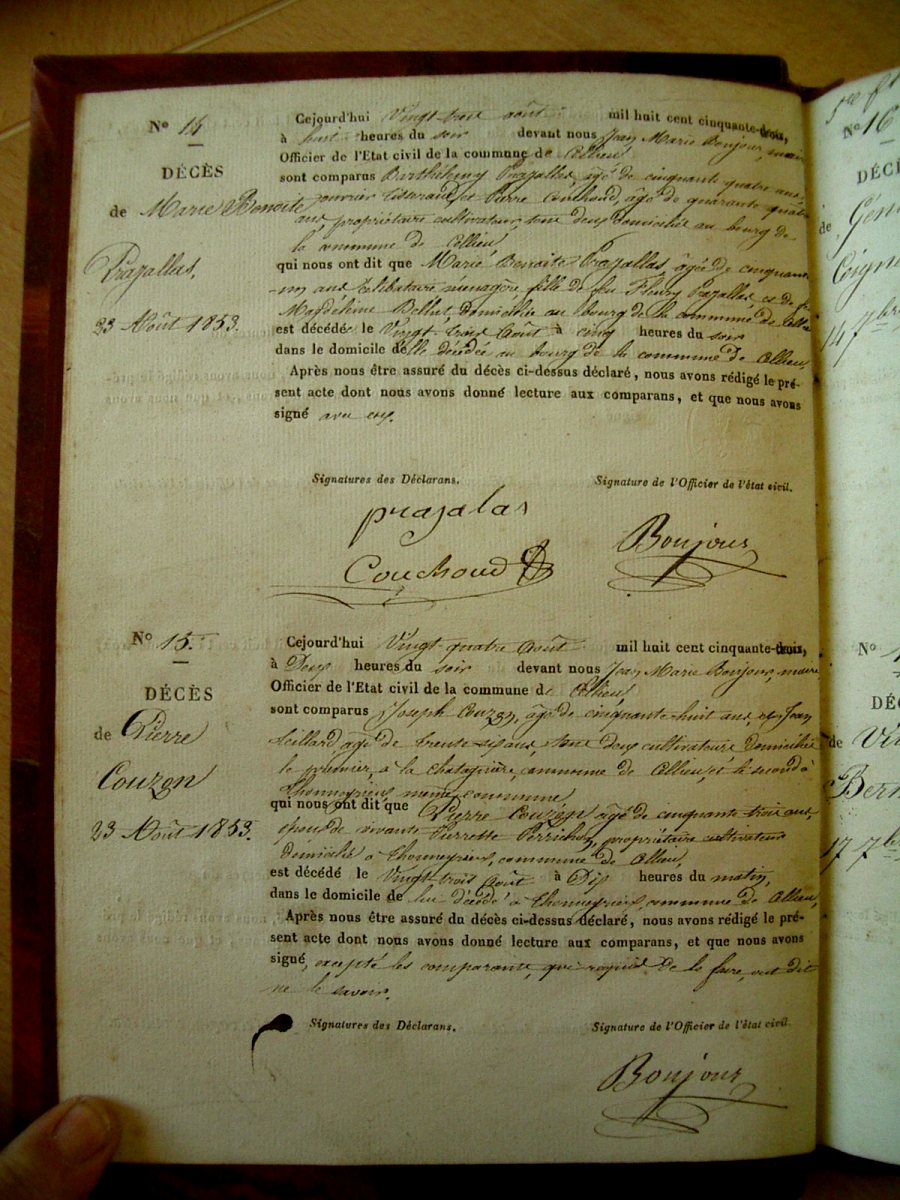 N° 14
DÉCÈS
de Marie Benoite
Prazallas,
23 Août 1853.
Cejourd'hui Vingt trois août mil huit cent cinquante-trois,
à huit heures du soir devant nous Jean Marie Bonjour, maire
Officier de l'Etat civil de la commune de Cellieu
sont comparus Barthélemy Prazallas, âgé de cinquante quatre ans,
ouvrier tisserand, et Pierre Couchoud, âgé de quarante quatre
ans, propriétaire cultivateur, tous deux domiciliés au bourg de
la commune de Cellieu
qui nous ont dit que Marie Benoite Prazallas, âgée de cinquante
un ans célibataire ménagère fille de feu Fleury Prazallas, et de
Magdeleine domiciliée au bourg de la commune de Cellieu
est décédée le Vingt trois Août à cinq heures du soir
dans le domicile de elle décédée au bourg de la commune de Cellieu,
Après nous être assuré du décès ci-dessus déclaré, nous avons rédigé le pré-
sent acte dont nous avons donné lecture aux comparans, et que nous avons
signé avec eux.
Signatures des Déclarans. Signature de l'Officier de l'état civil.
prazalas
Couchoud Bonjour
N° 15.
DÉCÈS
de Pierre
Couzon
23 Août 1853.
Cejourd'hui Vingt quatre Août mil huit cent cinquante-trois,
à Deux heures du soir devant nous Jean Marie Bonjour, maire
Officier de l'Etat civil de la commune de Cellieu
sont comparus Joseph Couzon, âgé de cinquante huit ans, et Jean
âgé de trente six ans, tous deux cultivateurs domiciliés
le premier, à la commune de Cellieu, et le second à
même commune
qui nous ont dit que Pierre Couzon âgé de cinquante trois ans,
époux de vivante Pierrette Perrichon, propriétaire cultivateur
domicilié à commune de Cellieu,
est décédé le Vingt trois Août à Dix heures du matin,
dans le domicile de lui décédé à commune de Cellieu,
Après nous être assuré du décès ci-dessus déclaré, nous avons rédigé le pré-
sent acte dont nous avons donné lecture aux comparans, et que nous avons
signé, excepté les comparants, qui requis de le faire, ont dit
ne le savoir.
Signatures des Déclarans. Signature de l'Officier de l'état civil.
Bonjour
N° 16
DÉCÈ
de
14 7bre
N°
DÉC
de
Bern
17 7b